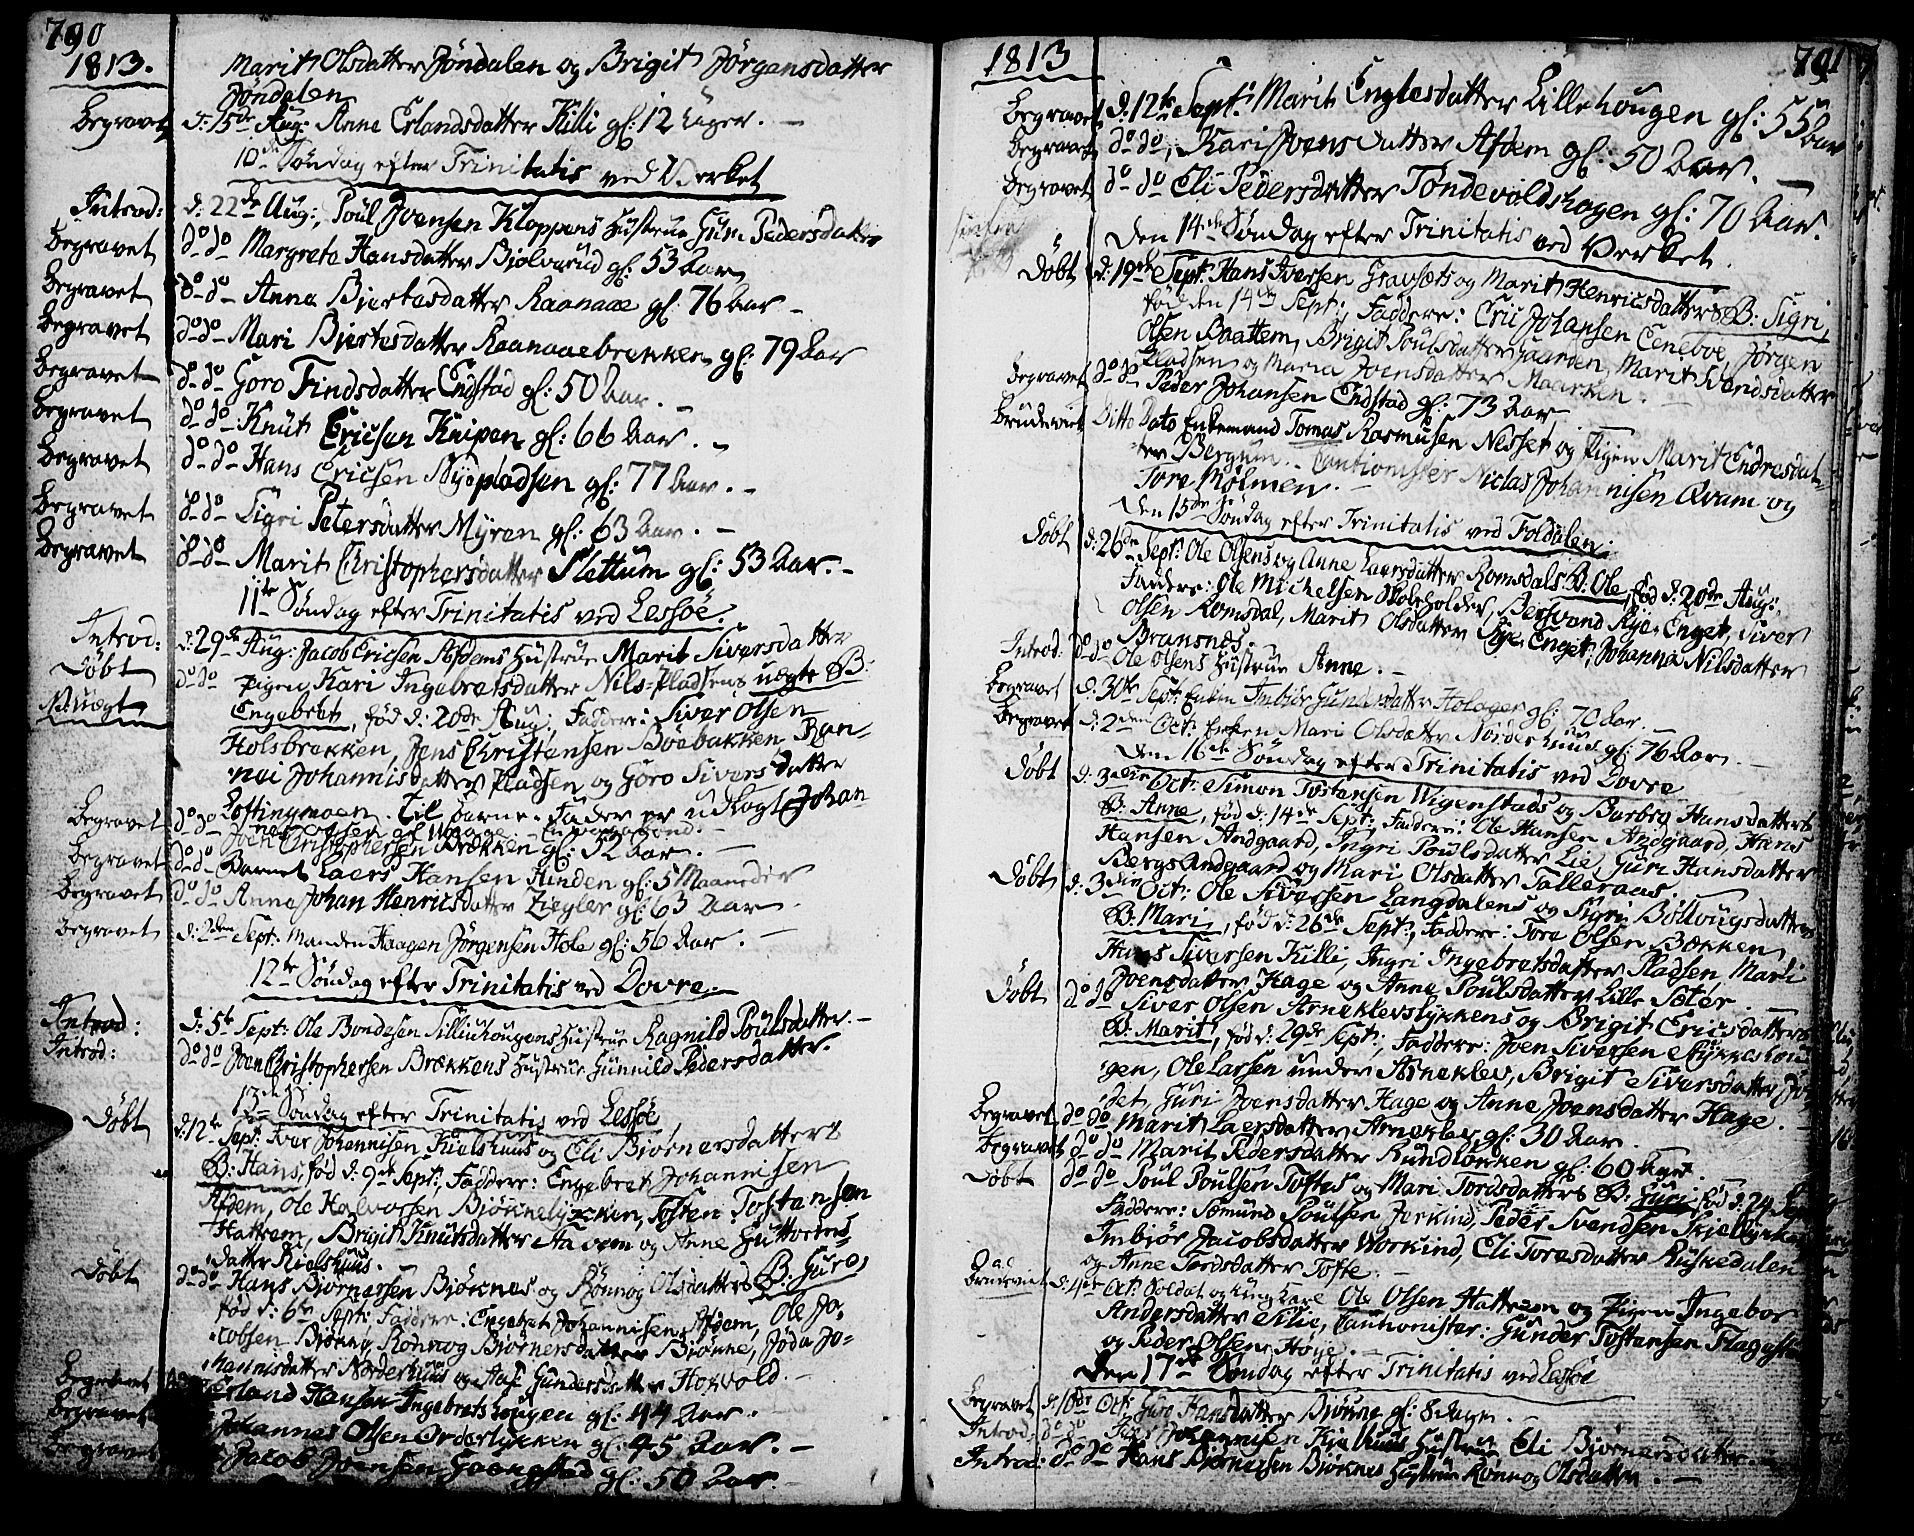 790
1813.
Marit Olsdatter Jøndalen og Brigit Jørgensdatter
Jøndalen
Begravet d: 15de Aug: Anne Erlandsdatter Killi gl: 12 Uger. —
10de Søndag efter Trinitatis ved Verket
Introd: d: 22de Aug: Poul Joensen Kloppens Hustrue Guni Pedersdatter
Begravet do do Margrete Hansdatter Bjølverud gl: 53 Aar
Begravet do do Anne Bjertesdatter Raanaae gl: 76 Aar —
Begravet do do Mari Bjertesdatter Raanaaebrekken gl: 79 Aar
Begravet do do Goro Findsdatter Endstad gl: 50 Aar. —
Begravet do do Knut Ericsen Knipen gl: 66 Aar. —
Begravet do do Hans Ericsen Nyepladsen gl: 77 Aar. —
Begravet do do Sigri Petersdatter Myren gl: 63 Aar. —
Begravet do do Marit Christophersdatter Slettum gl: 53 Aar. —
11te Søndag efter Trinitatis ved Lessøe.
Introd: d: 29de Aug: Jacob Ericsen Afdems Hustrue Marit Siversdatter
Døbt do do Pigen Kari Ingebretsdatter Nils-Pladsens uægte B:
Engebret, fød d: 20de Aug: Faddere: Siver Olsen
Holsbrekken, Jens Christensen Bøebakken, Ran-
nei Johannisdatter Pladsen og Goro Siversdatter
Loftingmoen. Til Barne-Fader er udlagt Johan
Begravet do do Joen Christophersen Brækken gl: 52 Aar. —
Begravet do do Barnet Laers Hansen Kinden gl: 5 Maaneder
Begravet do do Anne Johan Henricsdatter Ziegler gl: 63 Aar
Begravet d: 2den Sept: Manden Haagen Jørgensen Hole gl: 56 Aar. —
12te Søndag efter Trinitatis ved Dovre.
Introd: d: 5te Sept: Ole Bondesen Silliuhougens Hustrue Ragnild Poulsdatter. —
Introd: do do Joen Christophersen Brækkens Hustrue Gunnild Pedersdatter.
13de Søndag efter Trinitatis ved Lessøe
Døbt d: 12te Sept: Iver Johannisen Kielshuus og Eli Bjørnersdatters
B: Hans, fød d: 9de Sept:, Faddere: Engebret Johannisen
Afdem, Ole Halvorsen Bjøknelykken, Tosten Tostensen
Hattrem, Brigit Knudsdatter Aavem og Anne Guttorms-
datter Kielshuus.
Døbt do do Hans Bjørnersen Bjøknes og Rønnog Olsdatters B: Guro,
fød d: 6te Sept: Faddere: Engebret Johannisen Afdem, Ole Ja-
cobsen Bjønne, Rønnog Bjørnersdatter Bjønne, Joda Jo-
hannisdatter Norderhuus og Aase Gundersdatter Horvold. —
Begravet Erland Hansen Ingebretshougen gl: 44 Aar. —
Begravet Johannes Olsen Orderlykken gl: 45 Aar. —
Begravet Jacob Joensen gl: 50 Aar. —
1813
791
Begravet d: 12te Sept: Marit Englesdatter Lillehougen gl: 55 Aar
Begravet do do, Kari Joensdatter Afdem gl: 50 Aar. —
Begravet do do Eli Pedersdatter Tøndevoldshagen gl: 70 Aar.
Den 14de Søndag efter Trinitatis ved Verket
Døbt d: 19de Sept: Hans Iversen Gravsæts og Marit Henricsdatters B: Sigri,
fød den 14de Sept:, Faddere: Eric Johansen Eneboe, Jørgen
Olsen Baattem, Brigit Poulsdatter Gaarden, Marit Svendsdatter
Pladsen og Maria Joensdatter Maarken. —
Begravet do do Peder Johansen Endstad gl: 73 Aar
Brudeviet Ditto Dato Enkemand Tomas Rasmusen Nesset og Pigen Marit Endresdat-
ter Bergum. Cautionister Niclas Johannisen Qvam og
Tore Mølmen. —
Den 15de Søndag efter Trinitatis ved Foldalen.
Døbt d: 26de Sept: Ole Olsens og Anne Laersdatter Romsdals B: Ole, fød d: 20de Aug:,
Faddere: Ole Michelsen Skoleholder, Bersvend Rye-Enget, Siver
Olsen Romsdal, Marit Olsdatter Rye-Enget, Johanna Nilsdatter
Bransnes
Introd: do do Ole Olsens Hustrue Anne. —
Begravet d: 30te Sept: Enken Imbjør Gundersdatter Holager gl: 70 Aar. —
Begravet d: 2den Oct: Enken Mari Olsdatter Norderhuus gl: 76 Aar. —
Den 16de Søndag efter Trinitatis ved Dovre
Døbt d: 3die Oct: Simon Tostensen Wigenstads og Barbro Hansdatters
B: Anne, fød d: 14de Sept: Faddere: Ole Hansen Andgaard, Hans
Hansen Andgaard, Ingri Poulsdatter Lie, Guri Hansdatter
Bergsandgaard og Mari Olsdatter Talleraas
Døbt d: 3die Oct: Ole Siversen Langdalens og Sigri Bottougsdatters
B: Mari, fød d: 26de Sept:, Faddere: Tore Olsen Bækken
Hans Siversen Killi, Ingri Ingebretsdatter Pladsen, Marit
Joensdatter Hage og Anne Poulsdatter Lille Sæter
Døbt do do Siver Olsen Arneklevslykkens og Brigit Ericsdatters
B: Marit, fød d: 29de Sept:, Faddere: Joen Siversen Stykkeshou-
gen, Ole Larsen under Arneklev, Brigit Siversdatter
Guri Joensdatter Hage og Anne Joensdatter Hage. —
Begravet do do Marit Laersdatter Arneklev gl: 30 Aar. —
Begravet do do Marit Pedersdatter Rundløkken gl: 60 Aar
Døbt do do Poul Poulsen Toftes og Mari Tordsdatters B: Guri, fød d: 24 Sept:
Faddere: Semund Poulsen Jerkind, Peder Svendsen
Imbjør Jacobsdatter Workind, Eli Toresdatter Ruskedalen
og Anne Tordsdatter Tofte. —
Brudeviet d: 4de Oct: Soldat og Ungkarl Ole Olsen Hattrem og Pigen Ingebor
Andersdatter Silie, Cautionister: Gunder Tostensen
og Peder Olsen Høye. —
Den 17de Søndag efter Trinitatis ved Lessøe
Begravet d: 10de Oct: Guro Hansdatter Bjønne gl: 8 Dage. —
Introd: do do Iver Johannisen Kjelshuus Hustrue Eli Bjørnersdatter. —
Introd: do do Hans Bjørnersen Bjøknes Hustrue Rønnog Olsdatter. —